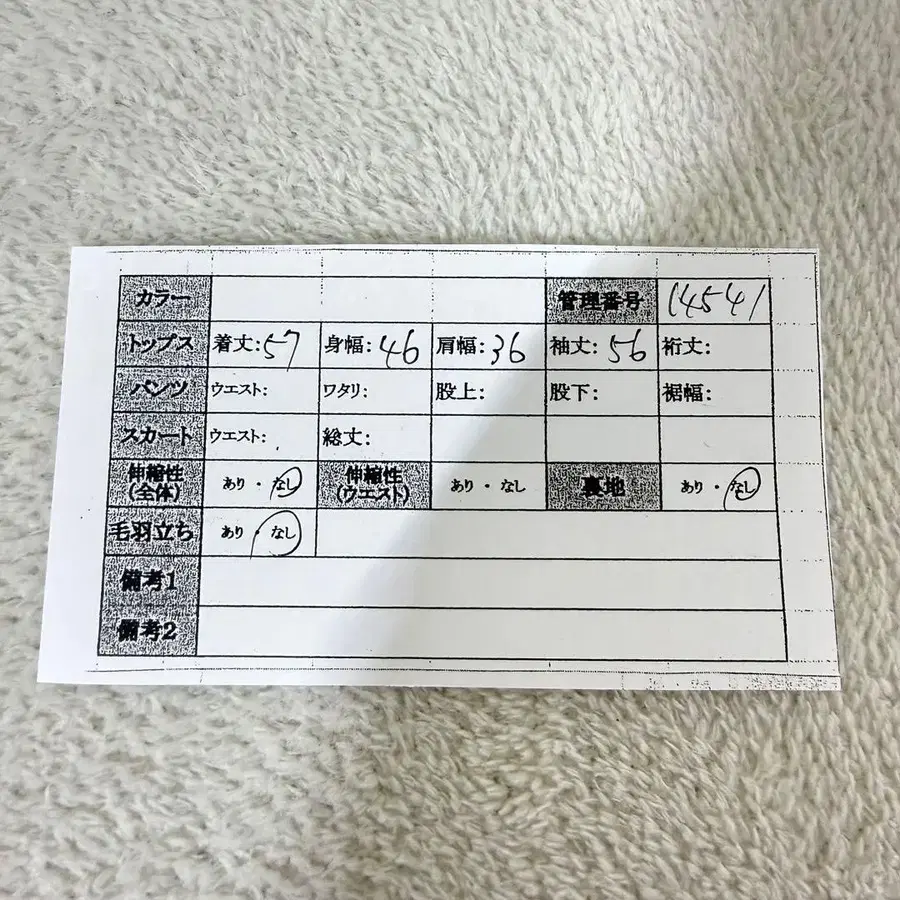 カラー 管理番号 14541
トップス 着丈:57 身幅:46 肩幅:36 袖丈:56 裄丈:
パンツ ウエスト: ワタリ: 股上: 股下: 裾幅:
スカート ウエスト: 総丈:
伸縮性(全体) あり・なし 伸縮性(ウエスト) あり・なし 裏地 あり・なし
毛羽立ち あり・なし
備考1
備考2